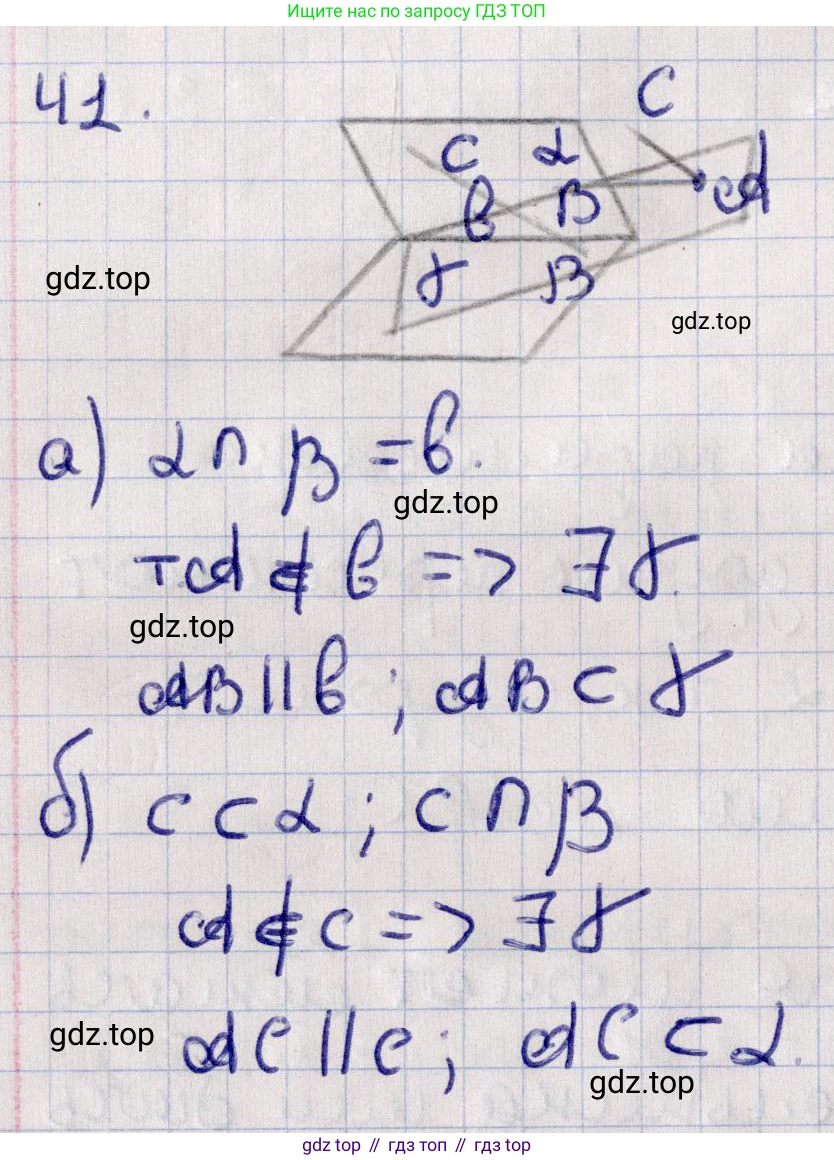 Ищите нас по запросу ГДЗ ТОП
41.
C
C α
A
b B
gdz.top
γ β
gdz.top
а) α ∩ β = b.
gdz.top
т A ∉ b => ∃ γ.
gdz.top
AB || b ; AB ⊂ γ
б) c ⊂ α ; c ∩ β
A ∉ c => ∃ γ
gdz.top
AC || c ; AC ⊂ α.
gdz.top
gdz top // гдз топ // гдз top